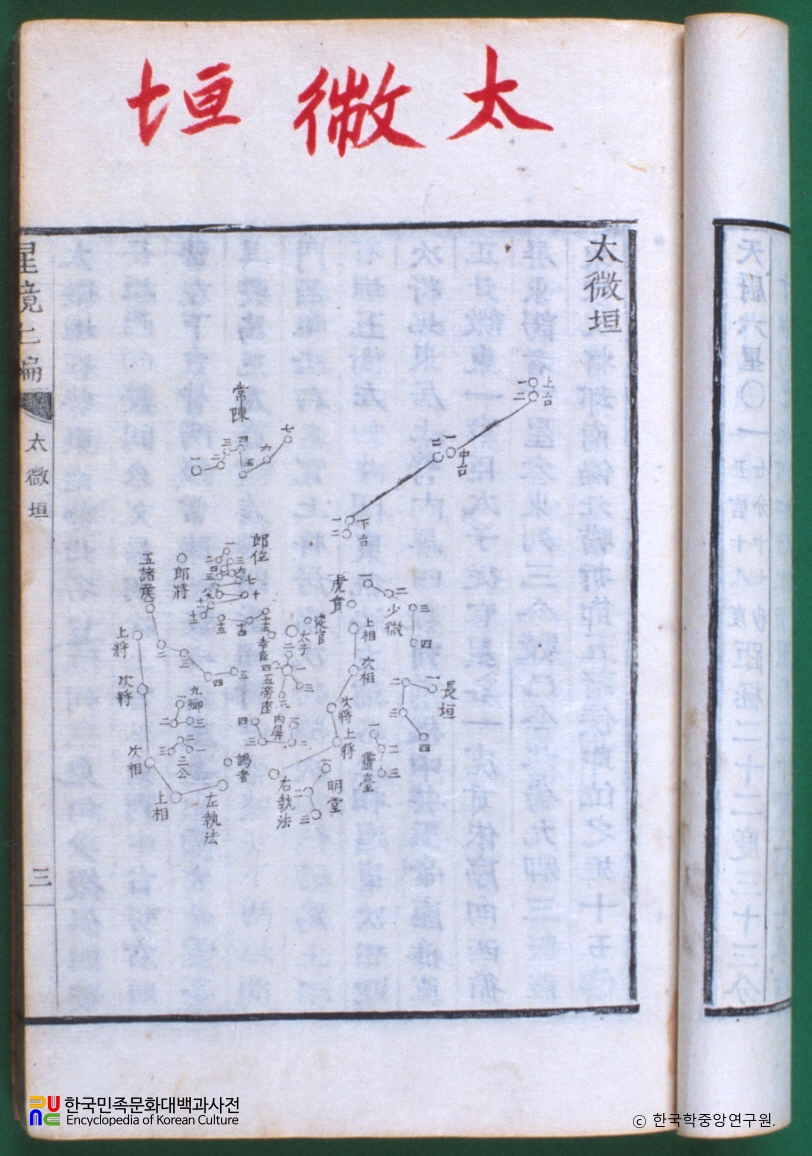 太微垣
太微垣
上台
一
二
中台
一
二
下台
一
二
常陳
一
二
三
四
五
六
七
郎位
郎將
五諸矦
虎賁
少微
一
二
三
四
從官
太子
幸臣
五帝座
內屏
上相
次相
次將
上將
長垣
一
二
三
四
靈臺
一
二
三
明堂
一
二
三
右執法
謁者
九卿
一
二
三
三公
一
二
三
上將
次將
次相
上相
左執法
星鏡上編
太微垣
三
天廚六星〇一
距極二十二度二十三分
한국민족문화대백과사전
Encyclopedia of Korean Culture
© 한국학중앙연구원.